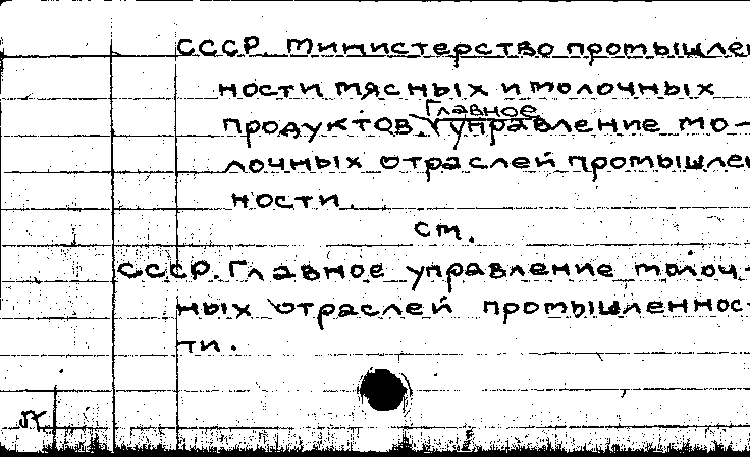 СССР. Министерство промышлен
ности мясных и молочных
Главное
продуктов. управление мо-
лочных отраслей промышлен
ности.
см.
СССР. Главное управление молоч-
ных отраслей промышленнос
ти.